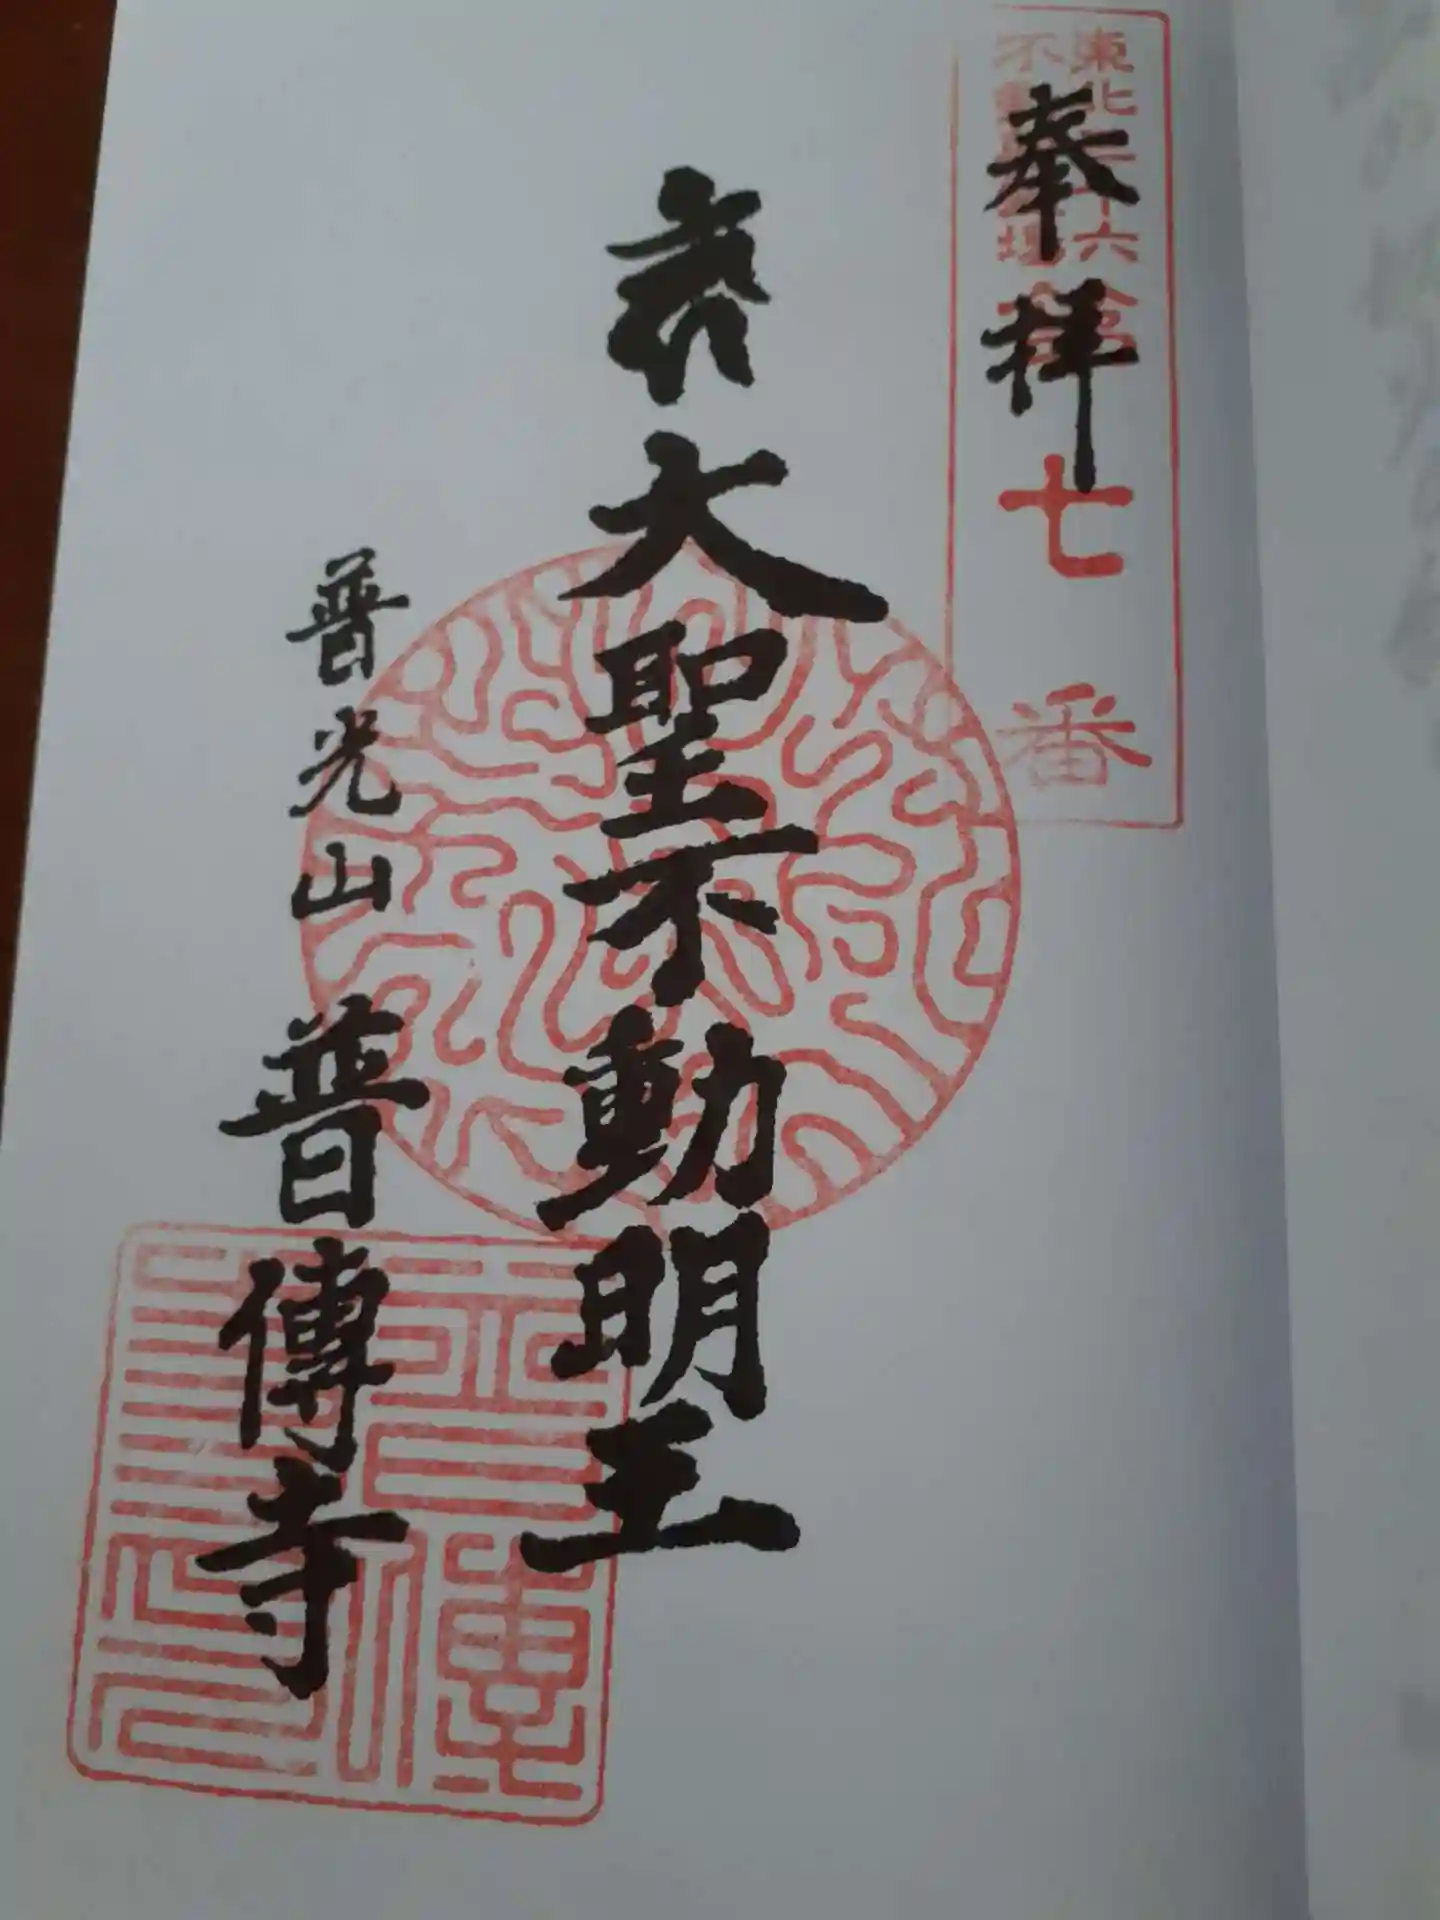 奉拝
東北三十六
不動尊霊場
七番
大聖不動明王
普光山 普傳寺